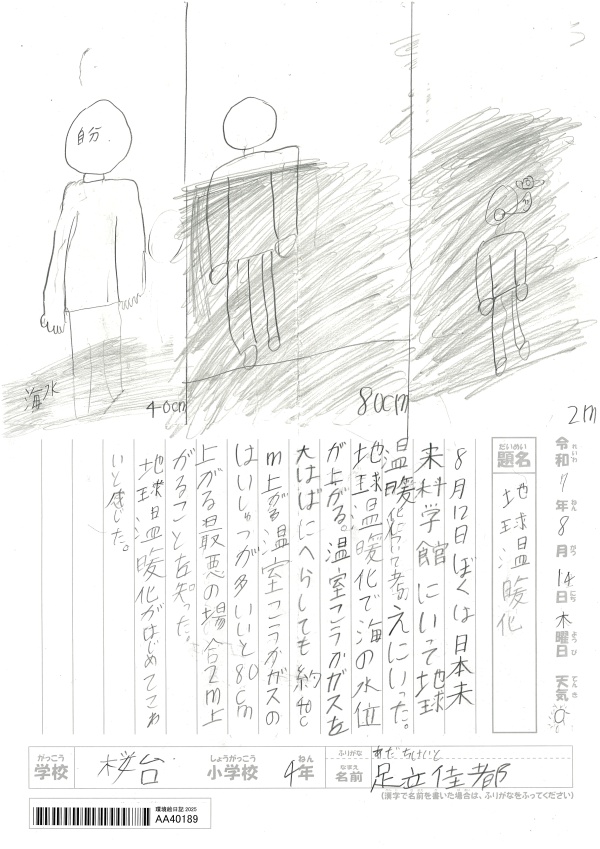 自分
海水
40cm
80cm
2m
令和7年8月14日木曜日 天気
れいわ ねん がつ にち ようび てんき
だいめい
題名
地球温暖化
8月12日ぼくは日本未
来科学館にいって地球
温暖化について考えにいった。
地球温暖化で海の水位
が上がる。温室こうかガスを
大はばにへらしても約40c
m上がる温室こうかガスの
はいしゅつが多いいと80cm
上がる最悪の場合2m上
がることを知った。
地球温暖化がはじめてこわ
いと感じた。
がっこう しょうがっこう ねん
学校 桜台 小学校 4年
ふりがな あだちけいと
なまえ
名前 足立佳都
(漢字で名前を書いた場合は、ふりがなをふってください)
環境絵日記 2025
AA40189